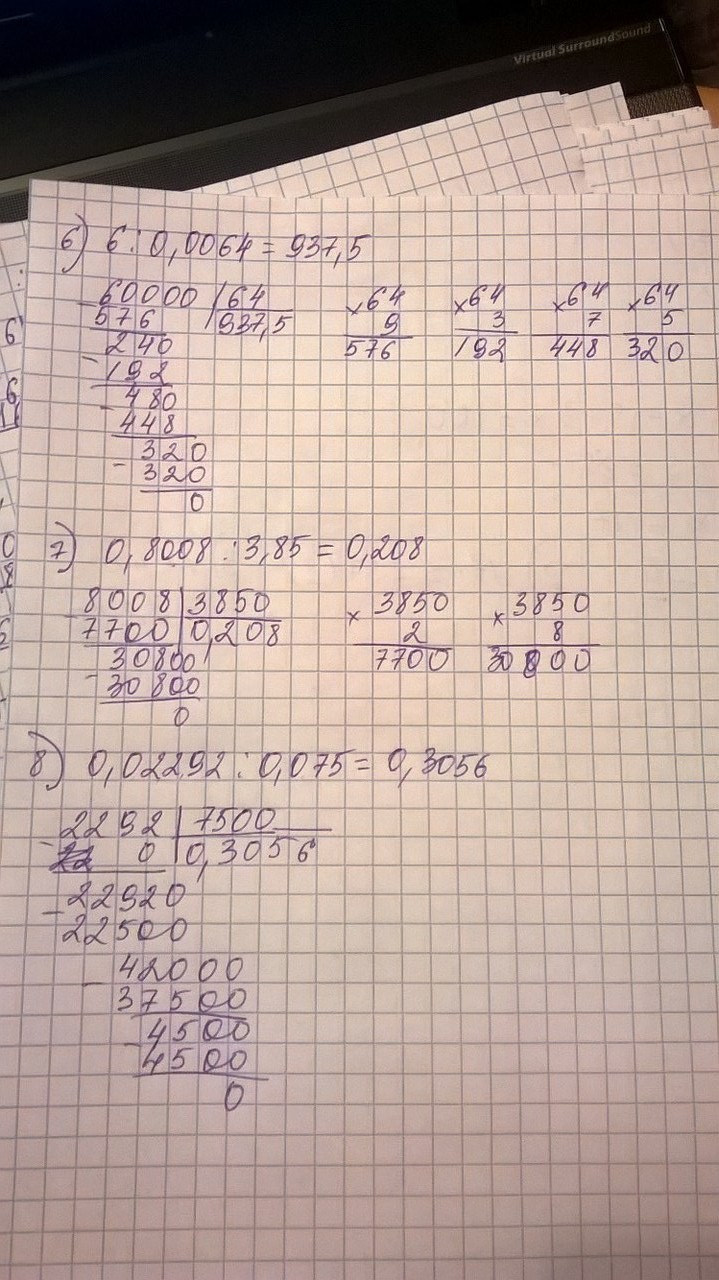 Virtual SurroundSound
6) 6 : 0,0064 = 937,5
60000 | 64
576 | 937,5
240
192
480
448
320
320
0
×64
9
576
×64
3
192
×64
7
448
×64
5
320
7) 0,8008 : 3,85 = 0,208
8008 | 3850
7700 | 0,208
30800
30800
0
× 3850
2
7700
× 3850
8
8) 0,02292 : 0,075 = 0,3056
2292 | 7500
0 | 0,3056
22920
22500
42000
37500
4500
4500
0